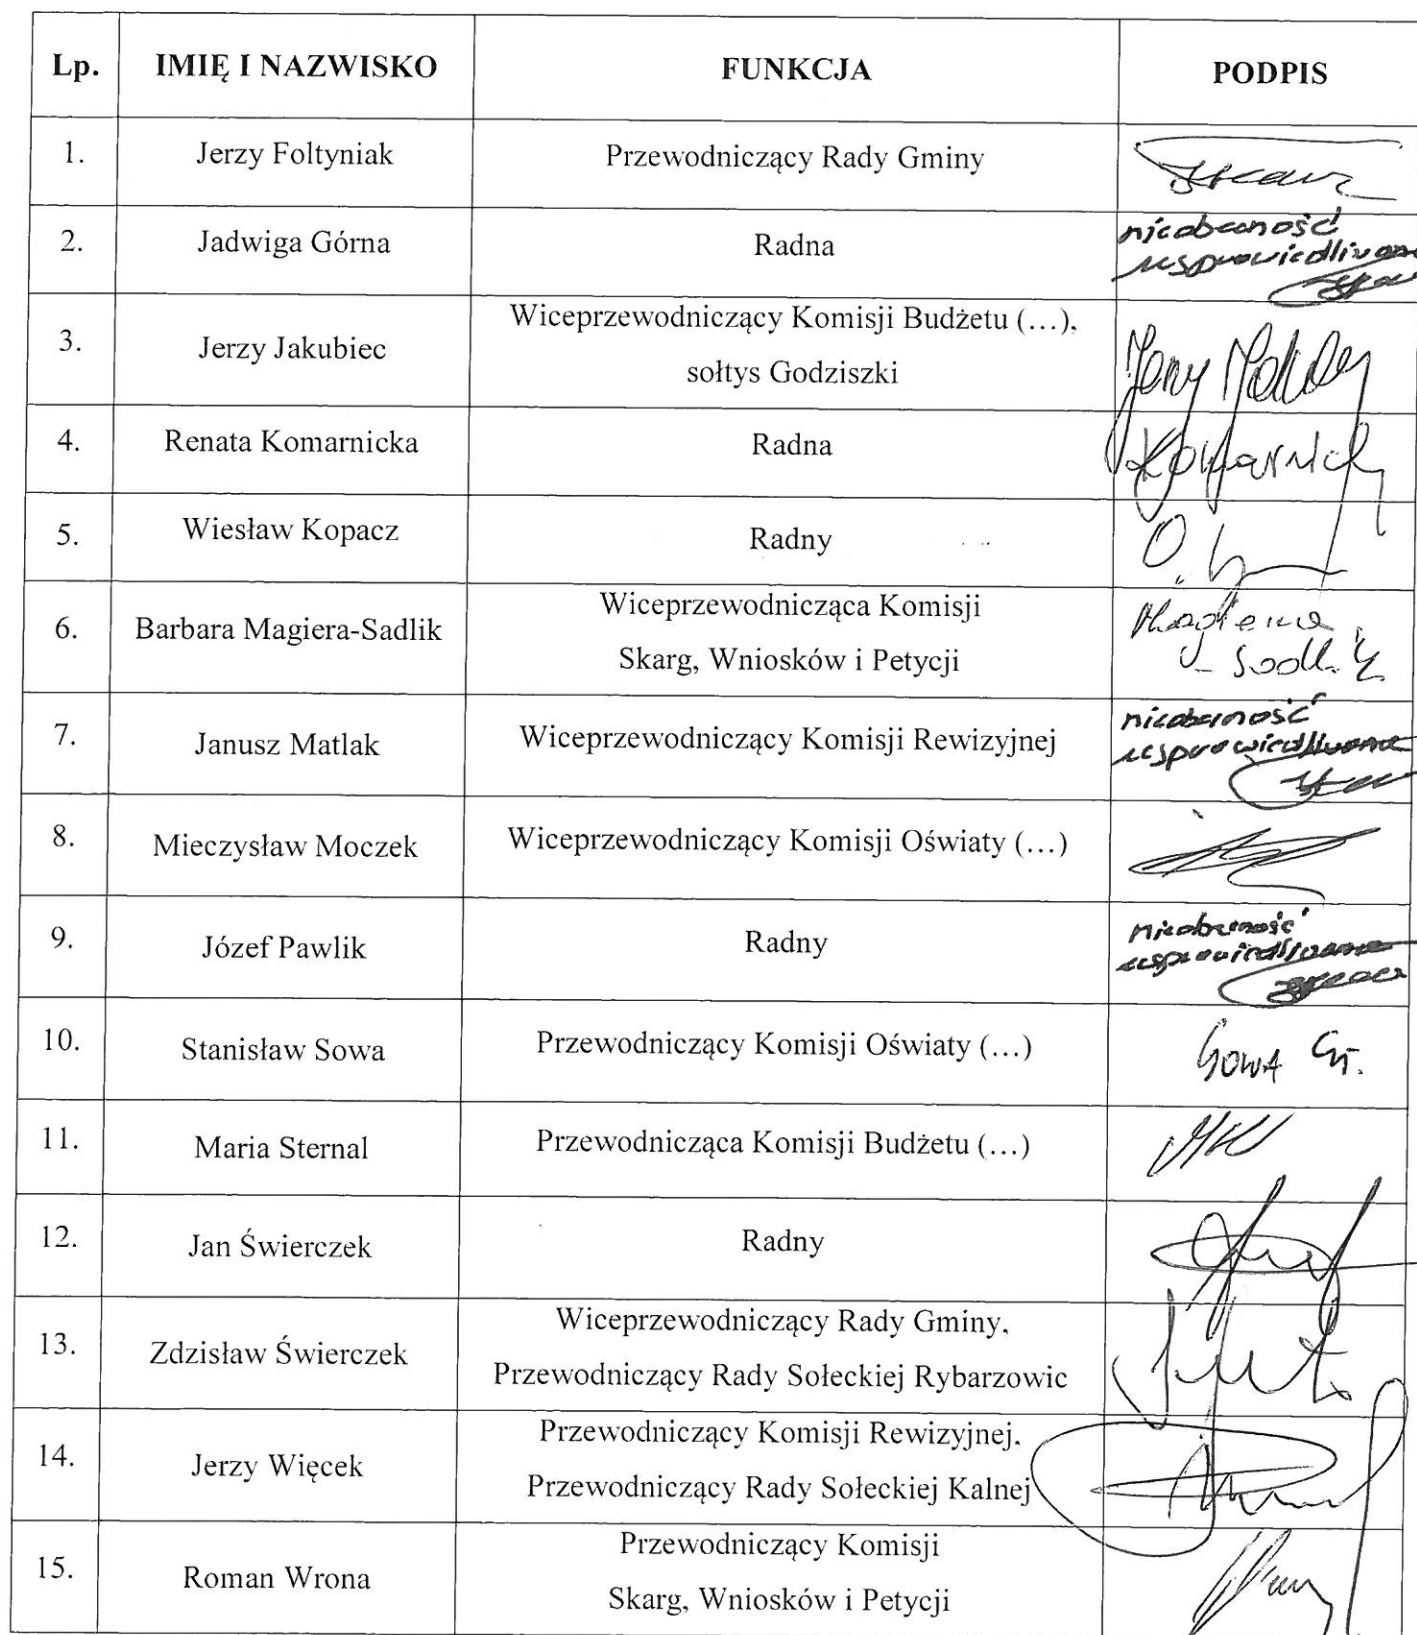 Lp. IMIĘ I NAZWISKO FUNKCJA PODPIS
1. Jerzy Foltyniak Przewodniczący Rady Gminy
2. Jadwiga Górna Radna nieobecność
usprawiedliwiona
3. Jerzy Jakubiec Wiceprzewodniczący Komisji Budżetu (…),
sołtys Godziszki
Jerzy Jakubiec
4. Renata Komarnicka Radna Komarnick
5. Wiesław Kopacz Radny
6. Barbara Magiera-Sadlik Wiceprzewodnicząca Komisji
Skarg, Wniosków i Petycji
Magiera
- Sadlik
7. Janusz Matlak Wiceprzewodniczący Komisji Rewizyjnej nieobecność
usprawiedliwiona
8. Mieczysław Moczek Wiceprzewodniczący Komisji Oświaty (…)
9. Józef Pawlik Radny nieobecność
usprawiedliwiona
10. Stanisław Sowa Przewodniczący Komisji Oświaty (…) Sowa St.
11. Maria Sternal Przewodnicząca Komisji Budżetu (…)
12. Jan Świerczek Radny
13. Zdzisław Świerczek Wiceprzewodniczący Rady Gminy,
Przewodniczący Rady Sołeckiej Rybarzowic
14. Jerzy Więcek Przewodniczący Komisji Rewizyjnej,
Przewodniczący Rady Sołeckiej Kalnej
15. Roman Wrona Przewodniczący Komisji
Skarg, Wniosków i Petycji